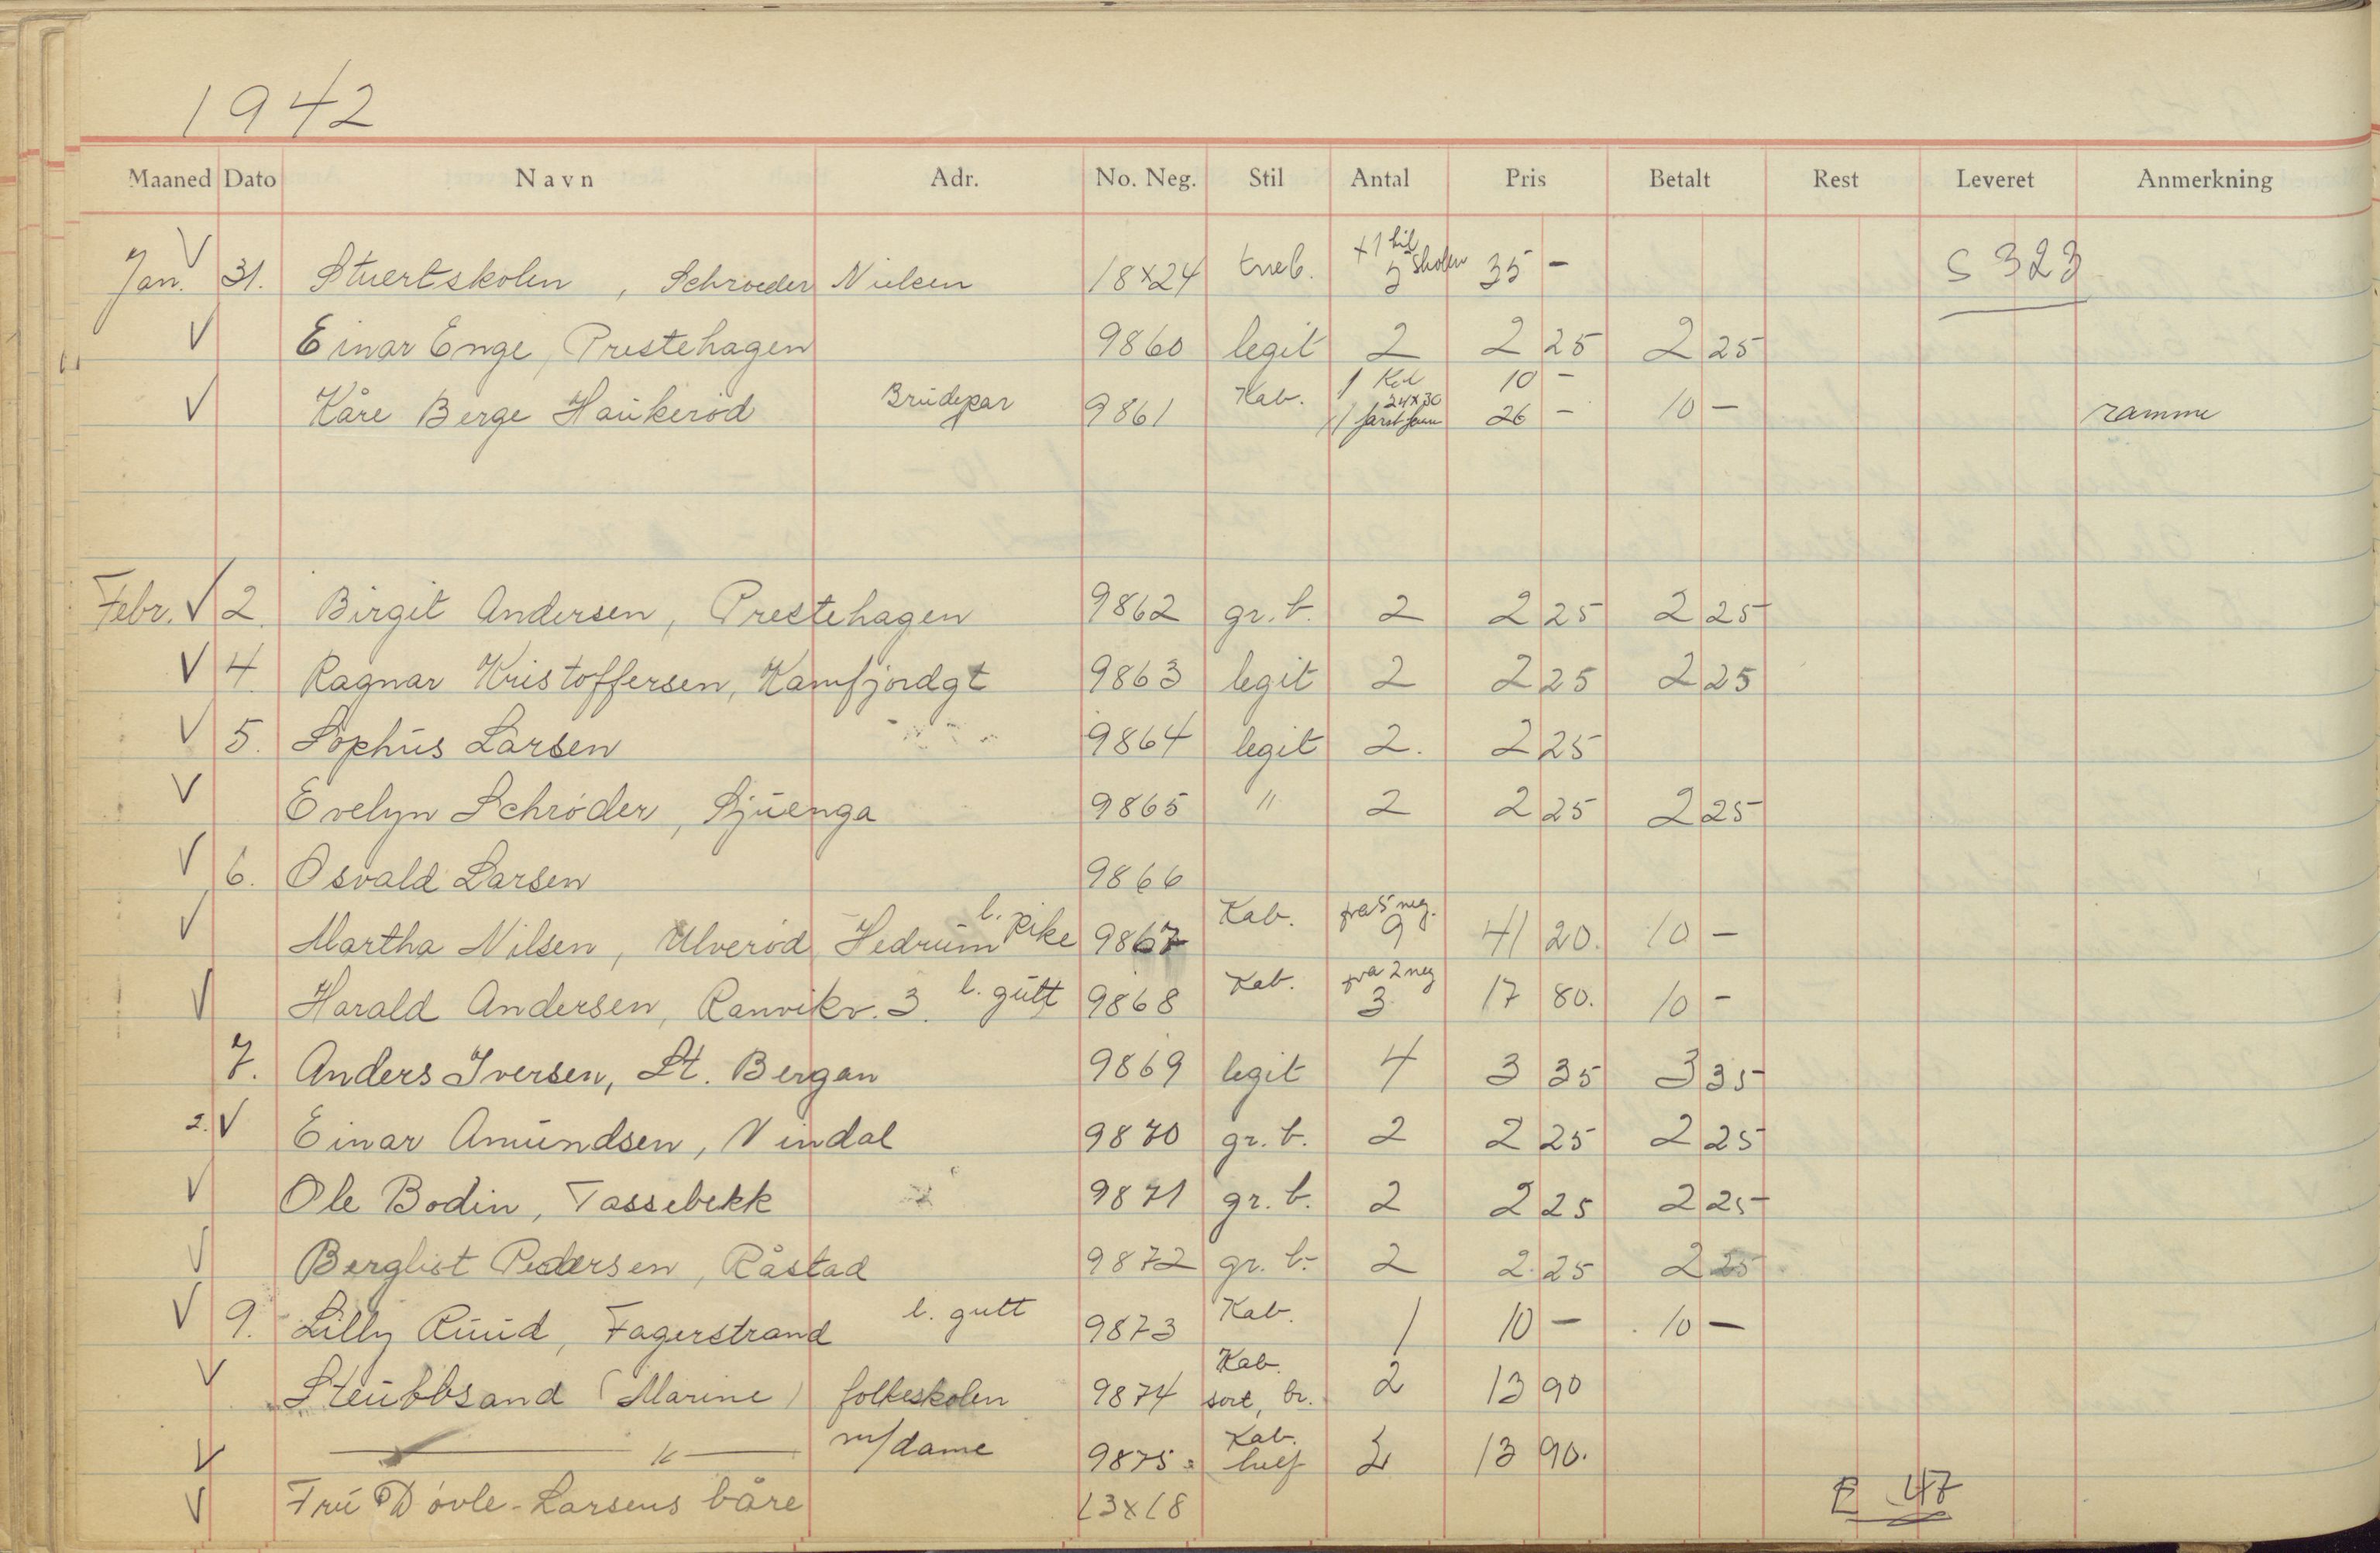 1942
Maaned Dato Navn Adr. No. Neg. Stil Antal Pris Betalt Rest Leveret Anmerkning
Jan. V 31. Stuertskolen, Schroeder Nielsen 18x24 +1 til skolen 5 35 - S 323
V Einar Enge, Prestehagen 9860 legit 2 2 25 2 25
V Kåre Berge Haukerød Brudepar 9861 Kab. 1 Kab 10 - 24x30 26 - 10 - ramme
Febr. V 2. Birgit Andersen, Prestehagen 9862 gr. b. 2 2 25 2 25
V 4. Ragnar Kristoffersen, Kamfjordgt 9863 legit 2 2 25 2 25
V 5. Sophus Larsen 9864 legit 2. 2 25
V Evelyn Schrøder, Sjuenga 9865 " 2 2 25 2 25
V 6. Osvald Larsen 9866
V Martha Nilsen, Ulverød Hedrum l. pike 9867 Kab. fra 5 neg. 9 41 20. 10 -
V Harald Andersen, Ranvikv. 3. l. gutt 9868 Kab. fra 2 neg 3 17 80. 10 -
7. Anders Iversen, St. Bergan 9869 legit 4 3 35 3 35
2. V Einar Amundsen, Vindal 9870 gr. b. 2 2 25 2 25
V Ole Bodin, Tassebekk 9871 gr. b. 2 2 25 2 25
V Bergliot Pedersen, Råstad 9872 gr. b. 2 2 25 2 25
V 9. Lilly Ruud, Fagerstrand l. gutt 9873 Kab. 1 10 - 10 -
V Steubbsand (Marine) folkeskolen 9874 Kab. sort, br. 2 13 90
V — " — m/dame 9875 Kab. 2 13 90.
V Fru Døvle-Larsens båre 13x18 E 47